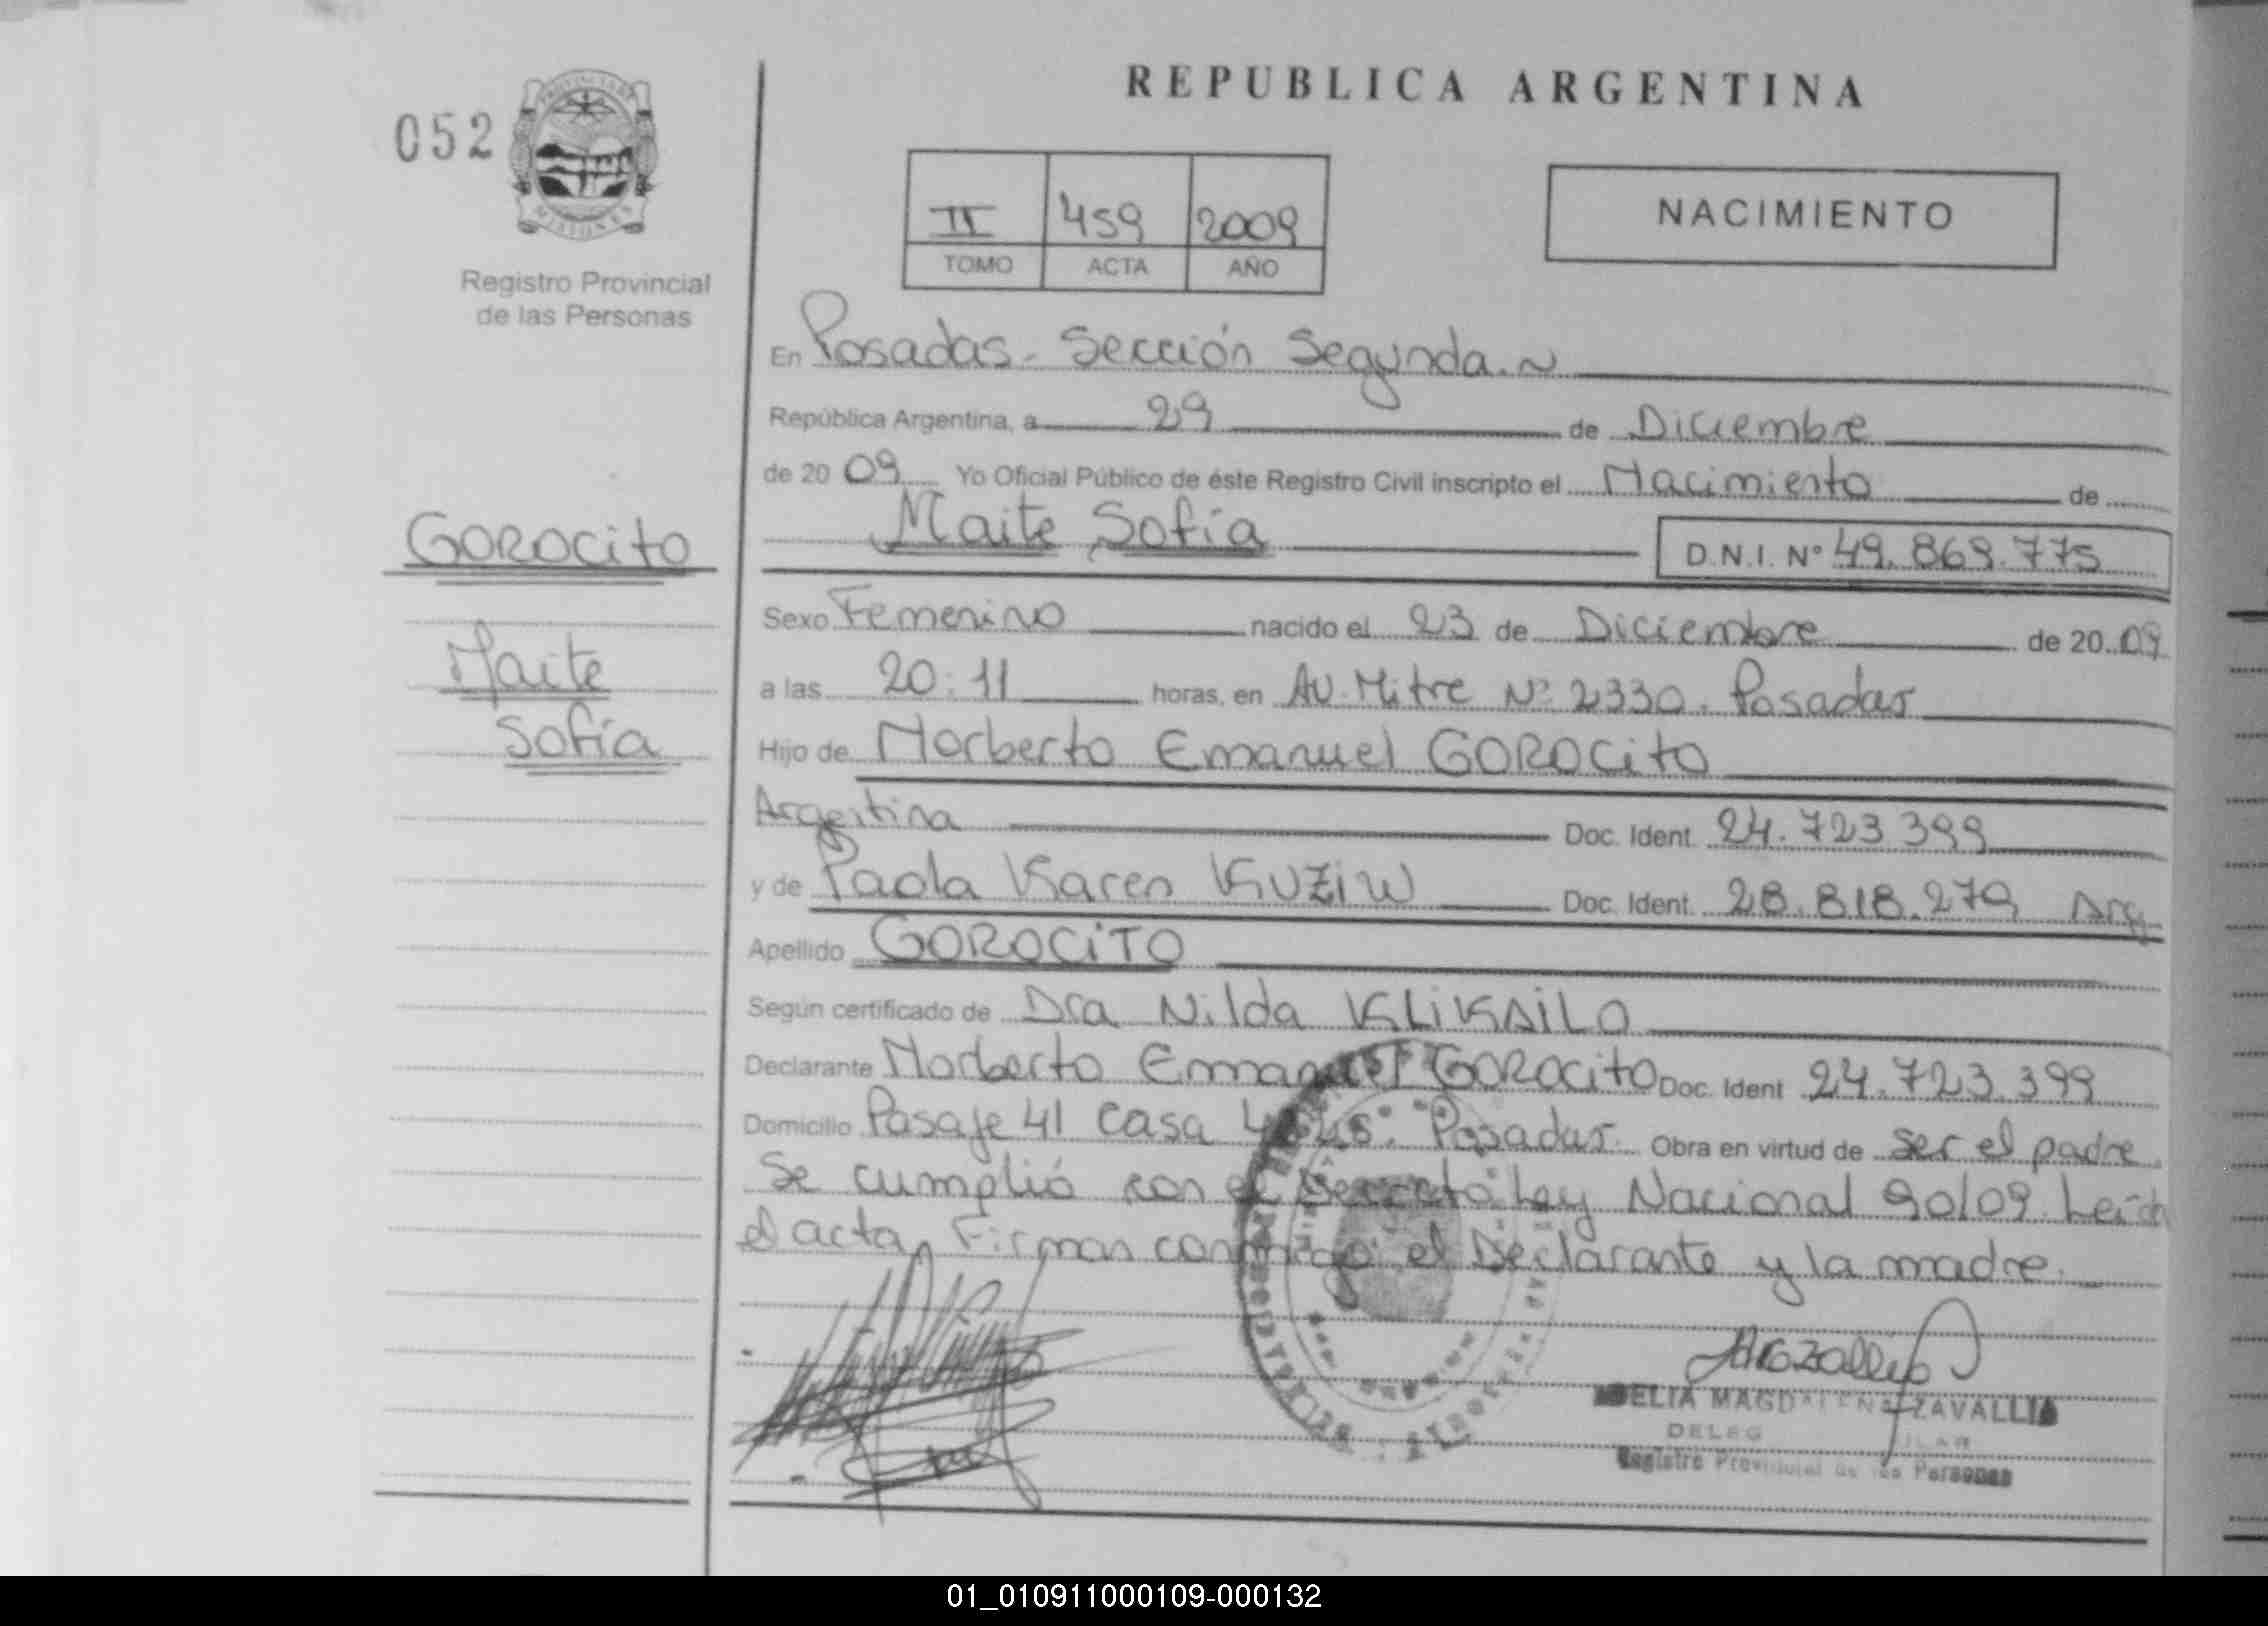 REPUBLICA ARGENTINA
052
PROVINCIA DE
MISIONES
Registro Provincial
de las Personas
II 459 2009
TOMO ACTA AÑO
NACIMIENTO
En Posadas - Sección Segunda. ~
República Argentina, a 29 de Diciembre
de 20 09 Yo Oficial Público de éste Registro Civil inscripto el Nacimiento de
Maite Sofía D.N.I. Nº 49.869.775
GOROCito
Maite
Sofía
Sexo Femenino nacido el 23 de Diciembre de 20 09
a las 20:11 horas, en Av. Mitre Nº 2330. Posadas
Hijo de Norberto Emanuel GOROCito
Argentina Doc. Ident. 24.723.399
y de Paola Karen KUZiW Doc. Ident. 28.818.279 Arg
Apellido GOROCiTO
Según certificado de Dra Nilda KLIKAILO
Declarante Norberto Emanuel GOROCito Doc. Ident 24.723.399
Domicilio Pasaje 41 Casa Posadas. Obra en virtud de ser el padre.
Se cumplió con el Decreto Ley Nacional 90/09. Leída
el acta, Firman conmigo el Declarante y la madre.
ADELIA MAGDALENA ZAVALLIA
Registro Provincial de las Personas
01_010911000109-000132